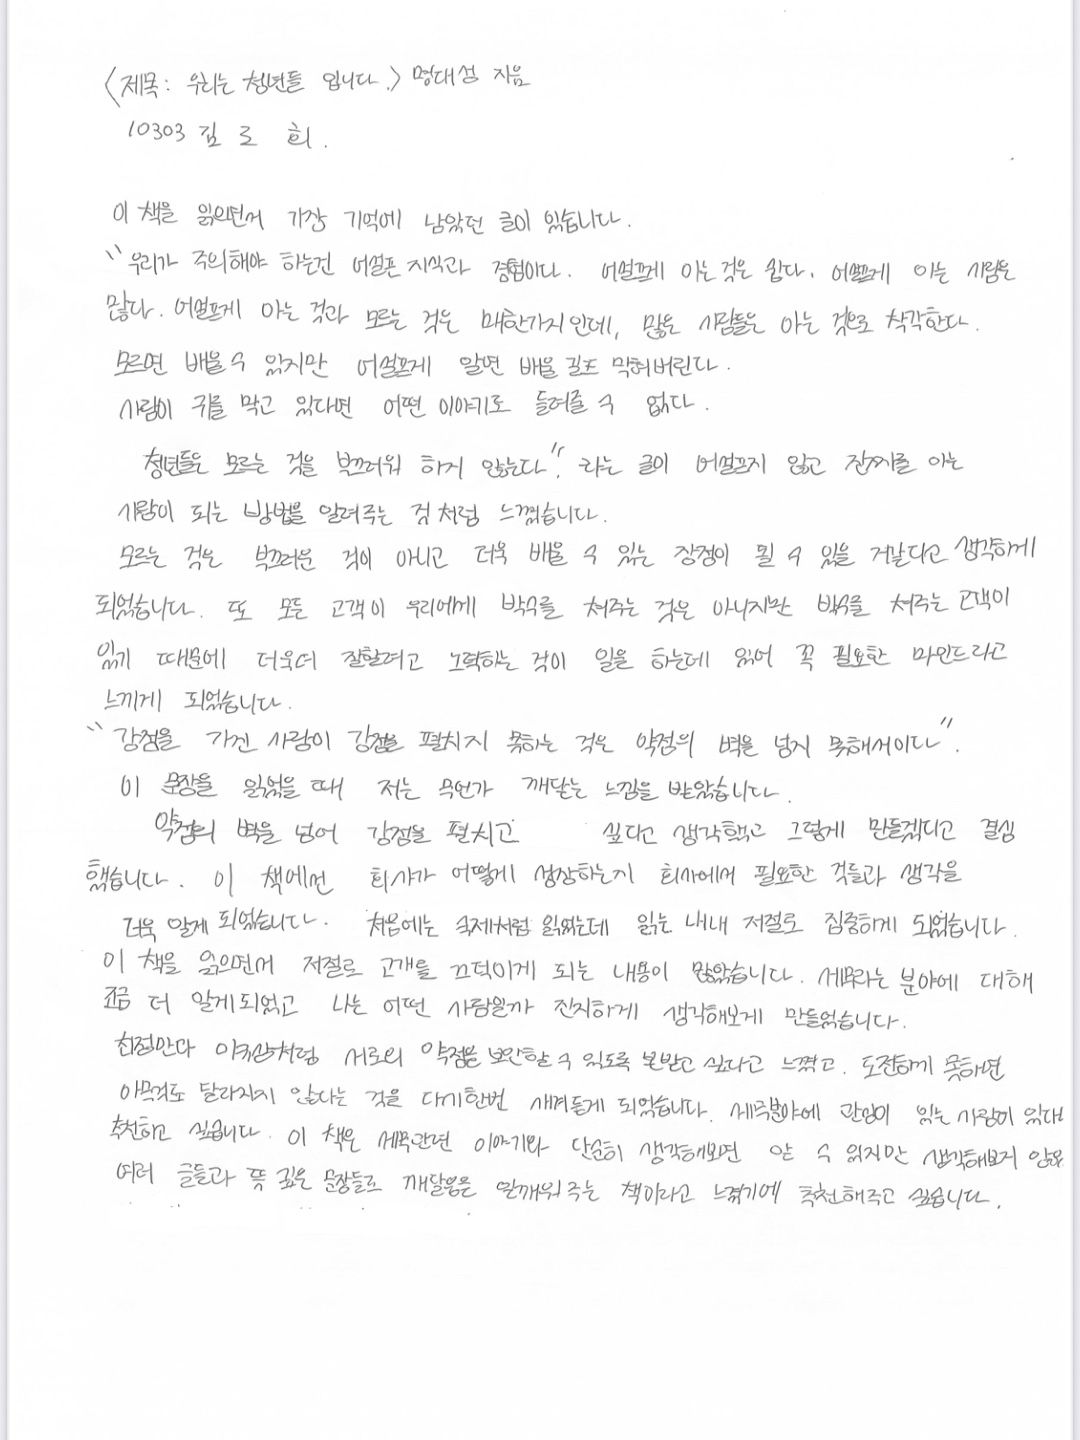 <제목: 우리는 청년들 입니다.> 명대성 지음
10303 김로희.
이 책을 읽으면서 가장 기억에 남았던 글이 있습니다.
"우리가 주의해야 하는건 어설픈 지식과 경험이다. 어설프게 아는 것은 쉽다. 어설프게 아는 사람은
많다. 어설프게 아는 것과 모르는 것은 매한가지인데, 많은 사람들은 아는 것으로 착각한다.
모르면 배울수 있지만 어설프게 알면 배울 길도 막혀버린다.
사람이 귀를 막고 있다면 어떤 이야기도 들려줄 수 없다.
청년들은 모르는 것을 부끄러워 하지 않는다". 라는 글이 어설프지 않고 진짜를 아는
사람이 되는 방법을 알려주는 것 처럼 느꼈습니다.
모르는 것은 부끄러운 것이 아니고 더욱 배울 수 있는 장점이 될 수 있을 거같다고 생각하게
되었습니다. 또 모든 고객이 우리에게 박수를 쳐주는 것은 아니지만 박수를 쳐주는 고객이
있기 때문에 더욱더 잘할려고 노력하는 것이 일을 하는데 있어 꼭 필요한 마인드라고
느끼게 되었습니다.
"강점을 가진 사람이 강점을 펼치지 못하는 것은 약점의 벽을 넘지 못해서이다".
이 문장을 읽었을 때 저는 무언가 깨닫는 느낌을 받았습니다.
약점의 벽을 넘어 강점을 펼치고 싶다고 생각했고 그렇게 만들겠다고 결심
했습니다. 이 책에선 회사가 어떻게 성장하는지 회사에서 필요한 것들과 생각을
더욱 알게 되었습니다. 처음에는 숙제처럼 읽었는데 읽는 내내 저절로 집중하게 되었습니다.
이 책을 읽으면서 저절로 고개를 끄덕이게 되는 내용이 많았습니다. 세무라는 분야에 대해
조금 더 알게되었고 나는 어떤 사람일까 진지하게 생각해보게 만들었습니다.
서로의 약점을 보완할 수 있도록 본받고 싶다고 느꼈고. 도전하지 못하면
아무것도 달라지지 않는다는 것을 다시한번 새겨듣게 되었습니다. 세무분야에 관심이 있는 사람이 있다면
추천하고 싶습니다. 이 책은 세무관련 이야기와 단순히 생각해보면 알 수 있지만 생각해보지 않은
여러 글들과 뜻 깊은 문장들로 깨달음을 일깨워 주는 책이라고 느꼈기에 추천해주고 싶습니다.